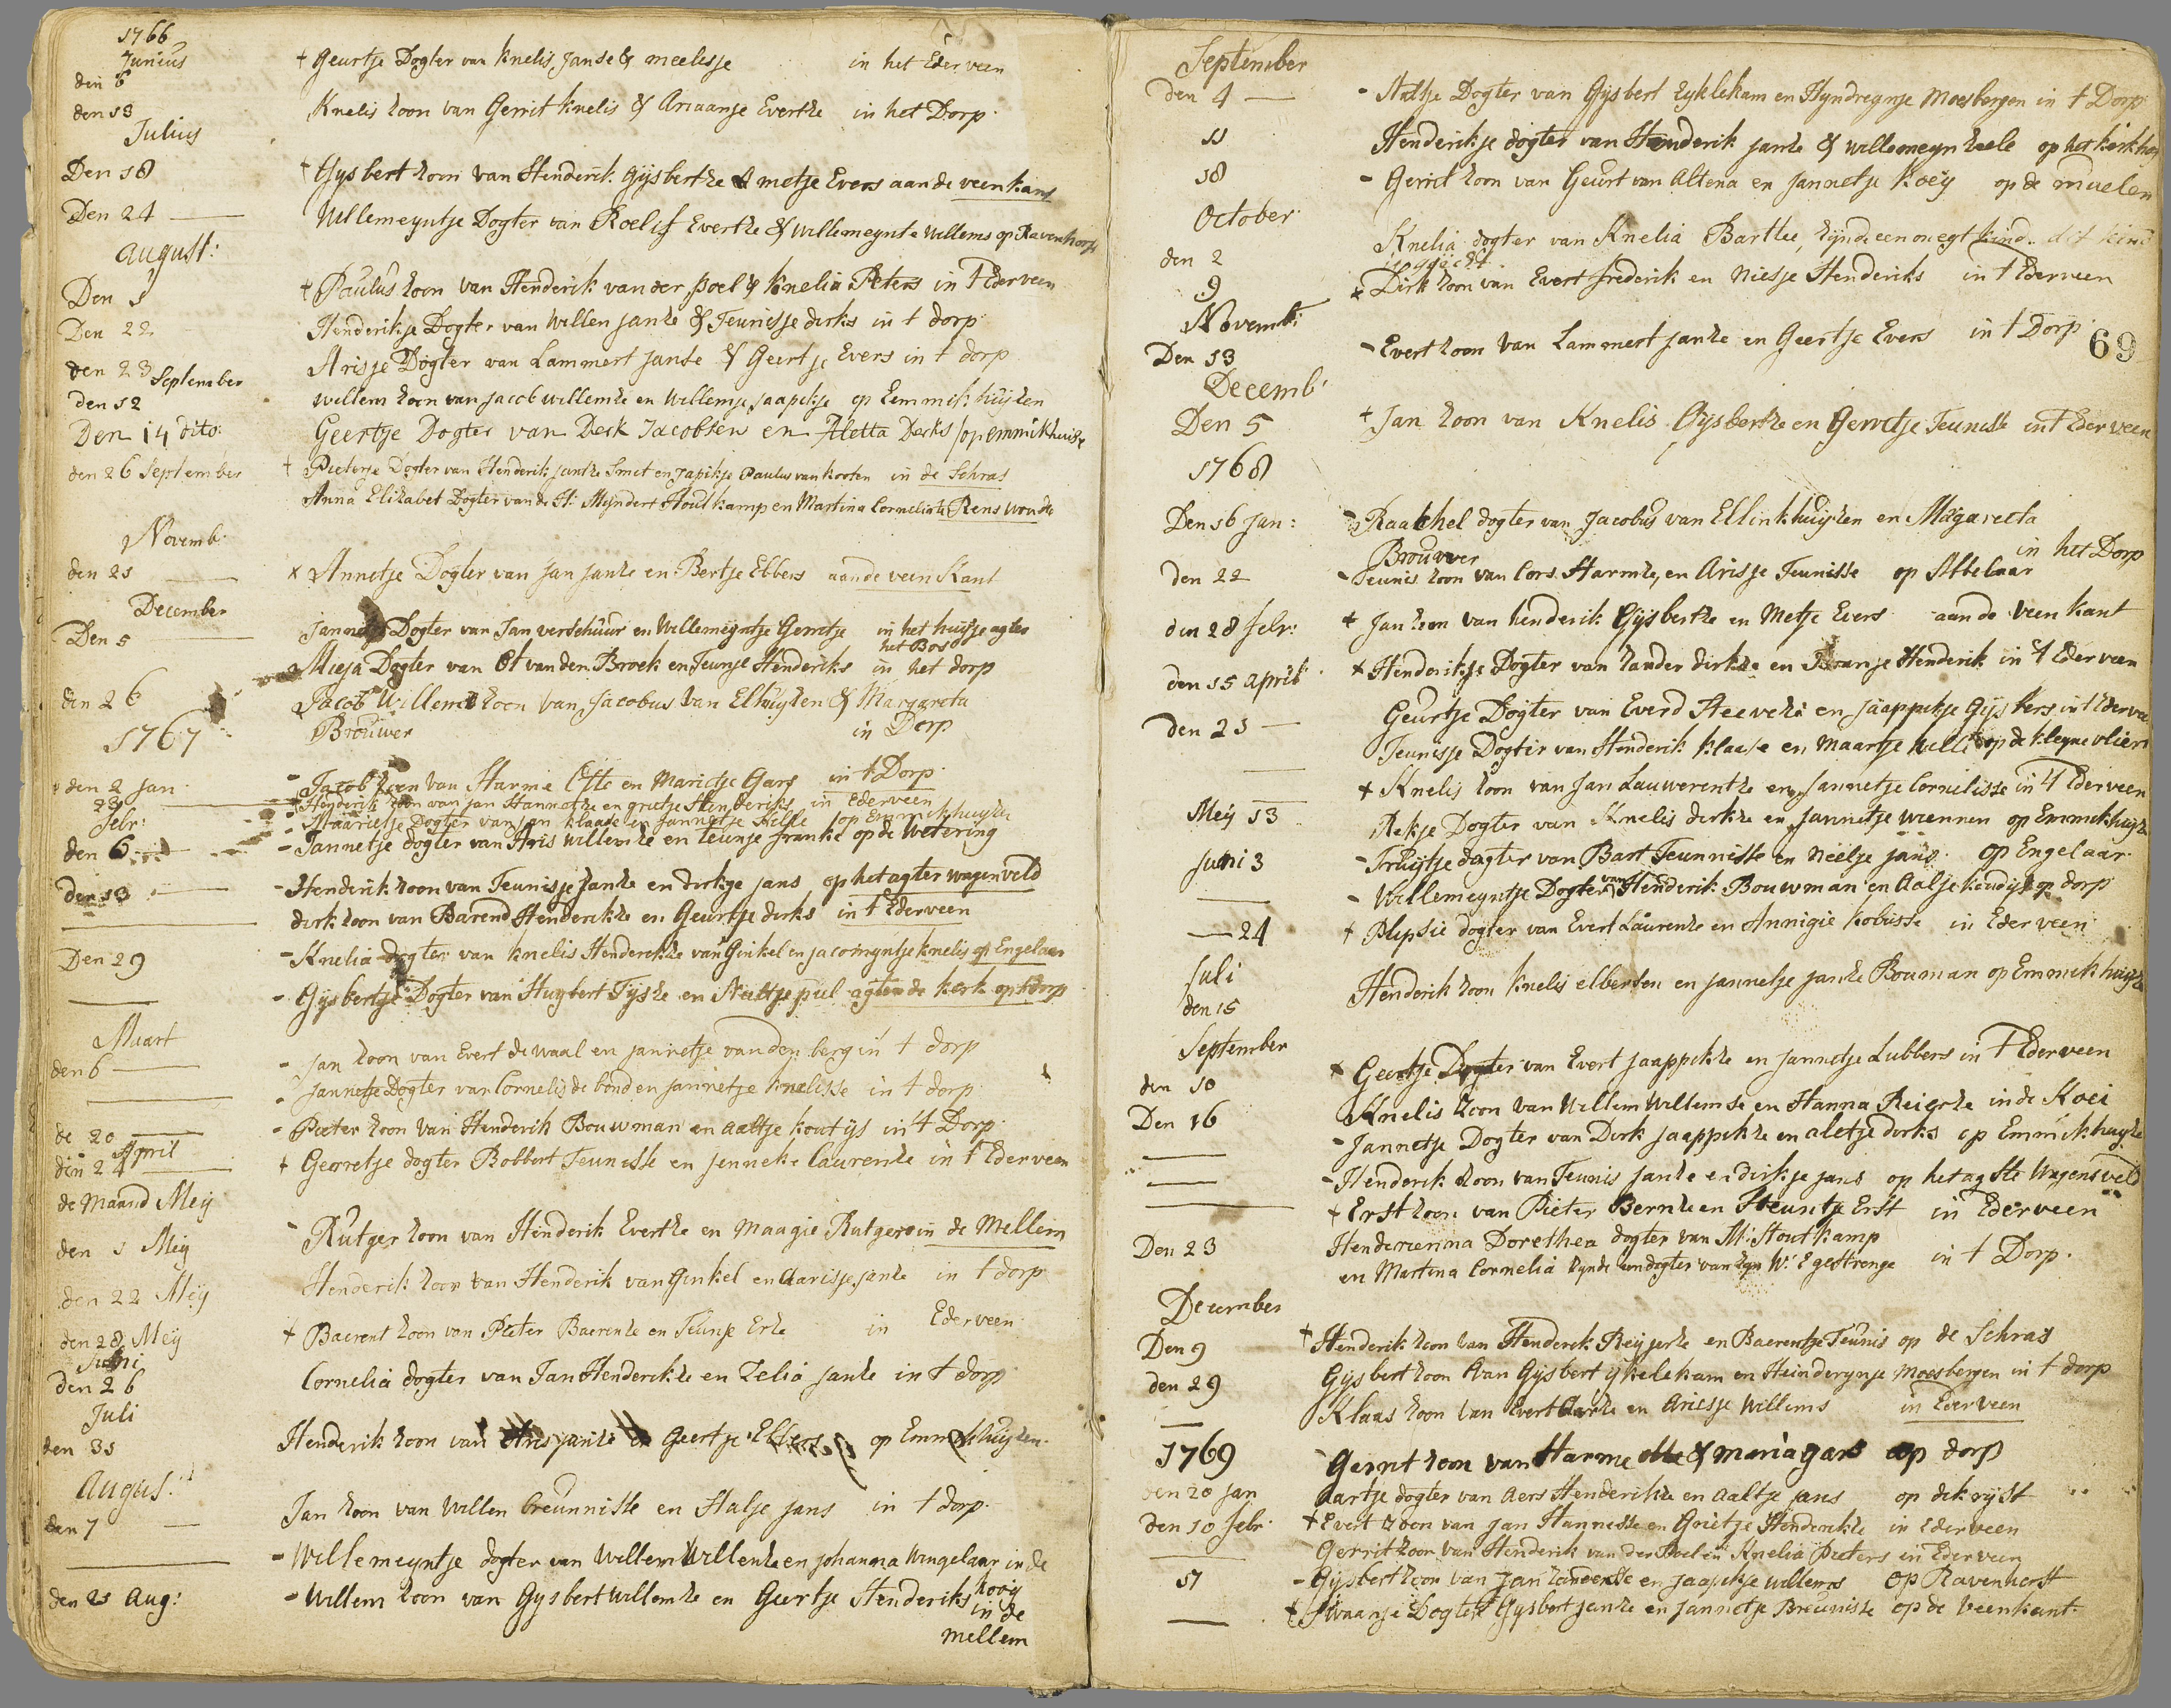 1766
Junius
den 6 + Geurtje Dogter van Knelis Janse & meelisje in het Ederveen
den 13 Knelis zoon van Gerrit Knelis & Ariaanje Evertze in het Dorp
Julius
Den 18 + Gysbert zoon van Henderik Gysbertze & metje Evers aan de veenkant
Den 24 Willemeyntje Dogter van Roelif Evertze & Willemeynte Willems op Ravenhorst
August:
Den 1 + Paulus zoon van Henderik van der poel & Knelia Peters in t Ederveen
Den 22 Henderikje Dogter van Willen Janze & Teunisje dirks in t dorp
den 23 Arisje Dogter van Lammert Janse & Geertje Evers in t dorp
September
den 12 willem zoon van Jacob willemze en Willemje Jaapikje op Eemmikhuyzen
Den 14 dito: Geertje Dogter van Derk Jacobsen en Aletta Derks op Emmikhuise
den 26 September + Pieterje Dogter van Henderik Janze Smit en Japikje Paulus van kooten in de Schras
Anna Elizabet Dogter van de H: Myndert Houtkamp en Martina Cornelia te Renswoude
Novemb:
den 21 x Annetje Dogter van Jan Janze en Bertje Ebbers aan de veen Kant
December
Den 5 Jannetje Dogter van Jan verschuur en Willemeyntje Gerretje in het huysje agter
het Bosch
Miesa Dogter van Ot van den Broek en Teunje Henderiks in het dorp
den 26 Jacob Willem zoon van Jacobus van Elhuyzen & Margareta
Brouwer in Dorp
1767
den 2 Jan - Jacob zoon van Harme Otte en Marietje Gars in t Dorp
23 Henderik zoon van Jan Hannetze en grietje Henderiks in Ederveen
Febr: - Maarietje Dogter van Jan Klaase en Jannetje Helle op Emmikhuyze
den 6 - Jannetje dogter van Aris willemze en teunje franke op de Wetering
den 13 - Henderik zoon van Teunisje Janze en dirkje jans op het agter wagenveld
dirk zoon van Barend Henderikze en Geurtje dirks in t Ederveen
Den 29 - Knelia dogter van Knelis Henderikze van Ginkel en Jacomyntje Knelis op Engelaar
- Gysbertje Dogter van Huybert Tysze en Aaltje pul agter de kerk op t dorp
Maart
den 6 - Jan zoon van Evert de waal en Jannetje van den berg in t dorp
- Jannetje Dogter van Cornelis de bond en Jannetje Knelisse in t dorp
de 20 - Pieter zoon van Henderik Bouwman en aaltje koutys in t Dorp
April
den 24 + Gerretje dogter Bobbert Teunisse en Jenneke Laurenze in t Ederveen
de Maand Mey
den 1 Mey - Rutger zoon van Hinderik Evertze en Maagie Rutgers in de Mellem
den 22 Mey Henderik zoon van Henderik van Ginkel en Aarisje Janze in t dorp
den 28 Mey + Baerent zoon van Pieter Baerenze en Teunje Erze in Ederveen
Juni
den 26 Cornelia dogter van Jan Henderikze en Zelia Janze in t dorp
Juli
den 31 Henderik zoon van Aris Janze en Geertje Ebbers op Emmikhuyzen
August:
den 7 Jan zoon van Willen Breunnisse en Halje Jans in t dorp
- Willemeyntje dogter van Willem Willenze en Johanna Wingelaar in de
kooy
den 21 Aug: - Willem zoon van Gysbert Willemze en Geertje Henderiks in de
mellem
September
den 4 - Aaltje Dogter van Gysbert Eyklekam en Hyndregnje Moesbergen in t Dorp
11 Henderikje dogter van Henderik Janze & willemeyn zeele op het kerkhof
18 - Gerrit zoon van Geurt van Altena en Jannetje Koey op de muelen
October
den 2 Knelia dogter van Knelia Bartlee, zynde een onegt kind. dit kind
is geegt
9 x Dirk zoon van Evert frederik en Niesje Henderiks in t Ederveen
Novemb:
Den 13 - Evert zoon van Lammert Janze en Geertje Evers in t Dorp
69
Decemb:
Den 5 + Jan zoon van Knelis Gysbertze en Gerretje Teunisse in t Ederveen
1768
Den 16 Jan: - Raakhel dogter van Jacobus van Ellinkhuyzen en Magareeta
Brouwer in het Dorp
den 22 - Teunis zoon van Cors Harmze, en Arisje Teunisse op Abbelaar
den 28 febr: + Jan zoon van henderik Gysbertze en Metje Evers aan de veen kant
den 15 april + Henderikje Dogter van zander dirkze en Branje Henderik in t Ederveen
den 21 Geurtje Dogter van Everd Steevens en Jaappikje Gysbers in t Ederveen
Teunisje Dogter van Henderik Klaase en Maartje Kelle op de kleyne vliert
+ Knelis zoon van Jan Lauwerentze en Jannetje Cornelisse in t Ederveen
Mey 13 Rekje Dogter van Knelis dirkze en Jannetje wiennen op Emmikhuyze
Juni 3 - Truytje dogter van Bart Teunnisse en Neelje jans op Engelaar
- Willemeyntje Dogter van Henderik Bouwman en Aalje koudys op dorp
24 + Plipsie dogter van Evert Laurenze en Annigie Kobusse in Ederveen
Juli
den 15 Henderik zoon Knelis elbertsen en Jannetje Janze Bouman op Emmikhuyze
September
den 10 x Geertje Dogter van Evert Jaappikze en Jannetje Lubbers in t Ederveen
Den 16 Knelis zoon van Willem Willemse en Hanna Reierze in de Koei
- Jannetje Dogter van Dirk Jaappikze en aletje dirks op Emmikhuyze
- Henderik zoon van Teunis Janze en dirkje Jans op het agste Wagensveld
+ Erst zoon van Pieter Bernze en Steuntje Erst in Ederveen
Den 23 Henderienna Dorethea dogter van M: Houtkamp
en Martina Cornelia zynde een dogter van zyn W: E gestrenge in t Dorp.
December
Den 9 + Henderik zoon van Henderik Reyjerze en Baerentje Teunis op de Schras
den 29 Gysbert zoon van Gysbert ykelekam en Heinderynje Moesbergen in t dorp
Klaas zoon van Evert Aarze en Ariesje Willems in Ederveen
1769 - Gerrit zoon van Harme otte & maria gars op dorp
den 20 Jan Aartje dogter van Aers Henderikze en Aaltje jans op de kryst
den 10 febr + Evert zoon van Jan Hannesse en Grietje Henderikze in Ederveen
Gerrit zoon van Henderik van der Poel en Knelia Pieters in Ederveen
17 - Gysbert zoon van Jan zanderse en Jaapikje willems op Ravenhorst
+ Swaanje Dogter Gysbert Janze en Jannetje Breunisse op de Veenkant